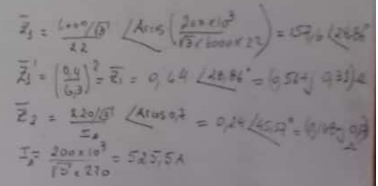 Z̄₁ = 6000/√3 / 22 ∠Arcos(200×10³ / √3×6000×22) = 157,6 ∠28,86°
Z̄₁' = (0,4/6,3)² = Z̄₁ = 0,64 ∠28,86° = (0,56+j 0,31)Ω
Z̄₂ = 220/√3 / I₂ ∠Arcos 0,7 = 0,24 ∠45,57° =
I₂ = 200×10³ / √3 · 220 = 525,5A